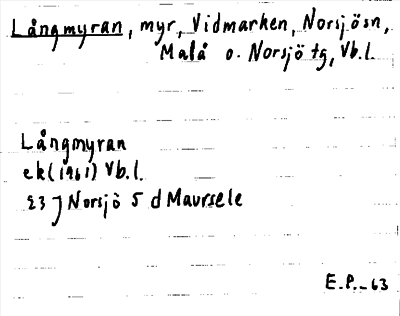 Långmyran, myr, Vidmarken, Norsjösn,
Malå o. Norsjö tg, Vb.l.
Långmyran
ek (1961) Vb.l.
23 J Norsjö 5 d Maursele
E.P.-63